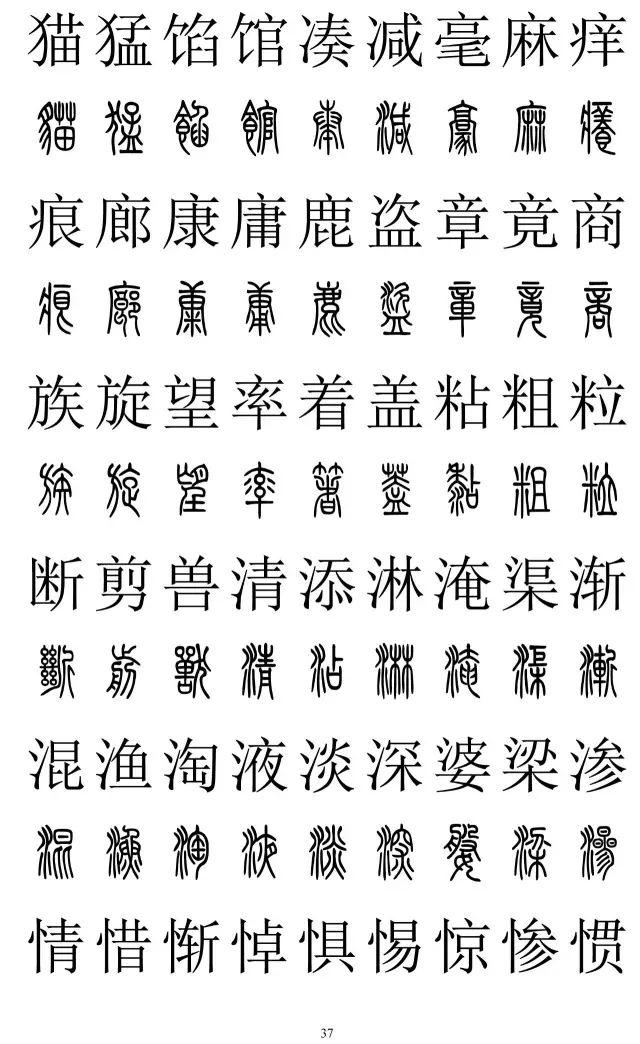 猫猛馅馆凑减毫麻痒
貓猛餡館奏減豪麻癢
痕廊康庸鹿盗章竟商
痕廊康庸鹿盜章竟商
族旋望率着盖粘粗粒
族旋望率箸蓋黏粗粒
断剪兽清添淋淹渠渐
斷剪獸清沾淋淹渠漸
混渔淘液淡深婆梁渗
混漁淘液淡深婆梁滲
情惜惭悼惧惕惊惨惯
37